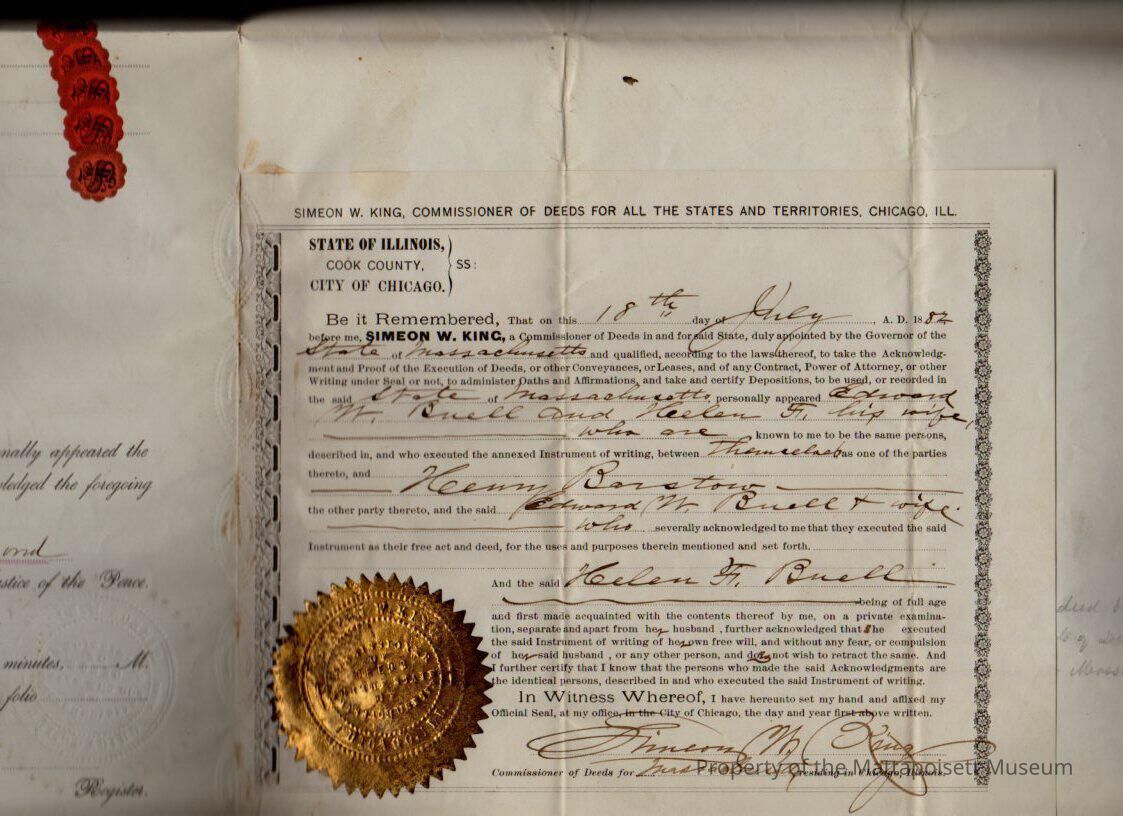 SIMEON W. KING, COMMISSIONER OF DEEDS FOR ALL THE STATES AND TERRITORIES, CHICAGO, ILL.
STATE OF ILLINOIS,
COOK COUNTY, SS:
CITY OF CHICAGO.
Be it Remembered, That on this 18th day of July, A. D. 1882
before me, SIMEON W. KING, a Commissioner of Deeds in and for said State, duly appointed by the Governor of the
State of Massachusetts and qualified, according to the laws thereof, to take the Acknowledg-
ment and Proof of the Execution of Deeds, or other Conveyances, or Leases, and of any Contract, Power of Attorney, or other
Writing under Seal or not, to administer Oaths and Affirmations, and take and certify Depositions, to be used, or recorded in
the said State of Massachusetts, personally appeared Edward
W. Buell and Helen F. his wife,
who are known to me to be the same persons,
described in, and who executed the annexed Instrument of writing, between themselves as one of the parties
thereto, and
Henry Barstow
the other party thereto, and the said Edward W. Buell & wife
who severally acknowledged to me that they executed the said
Instrument as their free act and deed, for the uses and purposes therein mentioned and set forth.
And the said Helen F. Buell
being of full age
and first made acquainted with the contents thereof by me, on a private examina-
tion, separate and apart from her husband, further acknowledged that She executed
the said Instrument of writing of her own free will, and without any fear, or compulsion
of her said husband, or any other person, and does not wish to retract the same. And
I further certify that I know that the persons who made the said Acknowledgments are
the identical persons, described in and who executed the said Instrument of writing.
In Witness Whereof, I have hereunto set my hand and affixed my
Official Seal, at my office, in the City of Chicago, the day and year first above written.
Simeon W. King
Commissioner of Deeds for residing in Chicago, Illinois.
Property of the Mattapoisett Museum
nally appeared the
ledged the foregoing
ond
stice of the Peace.
minutes, M.
folio
Register.